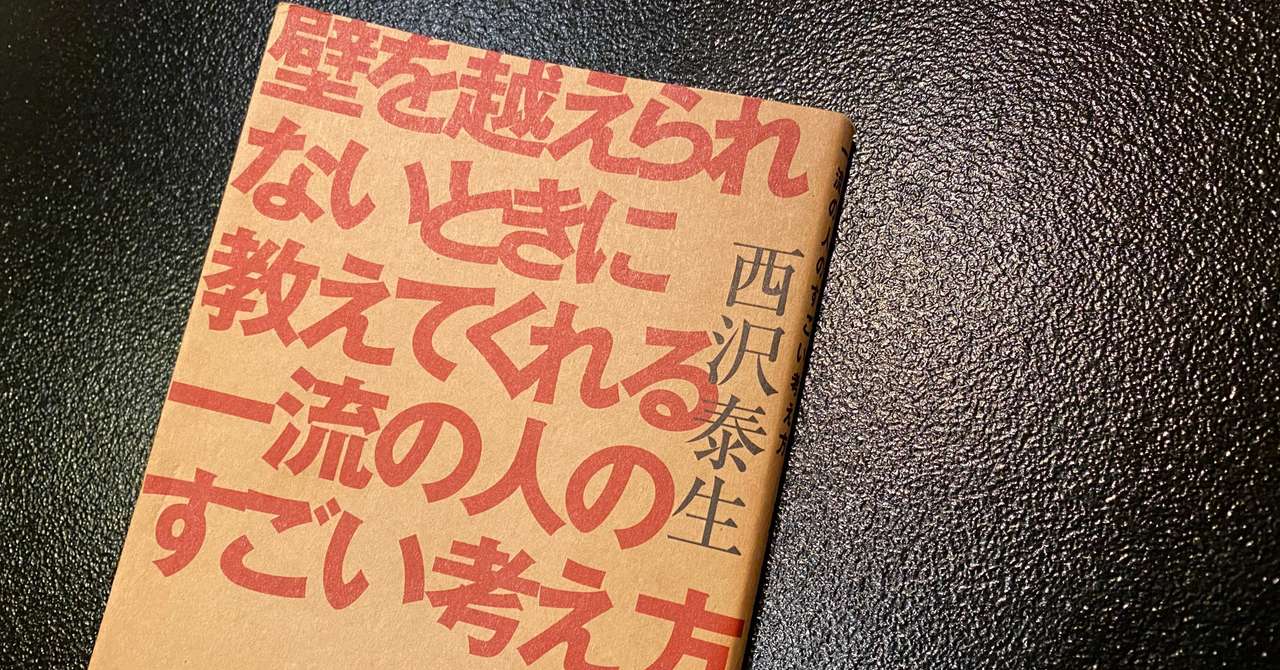 壁を越えられ
ないときに
教えてくれる
一流の人の
すごい考え方
西沢泰生